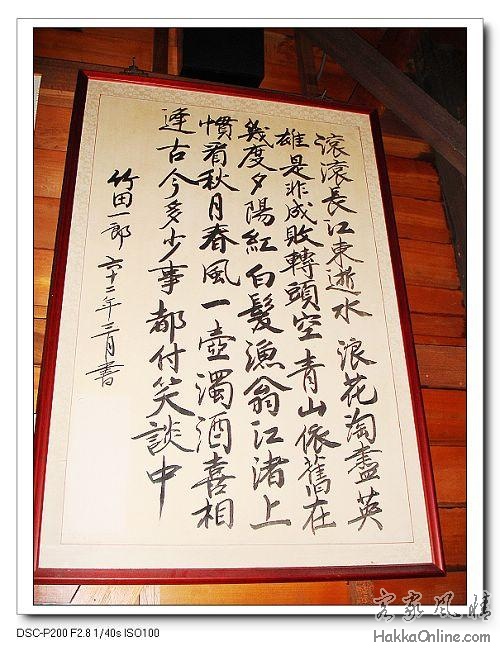 滾滾長江東逝水 浪花淘盡英
雄是非成敗轉頭空 青山依舊在
幾度夕陽紅白髮漁翁江渚上
慣看秋月春風一壺濁酒喜相
逢古今多少事都付笑談中
竹田一郎 六十二年三月書
客家風情
HakkaOnline.com
DSC-P200 F2.8 1/40s ISO100